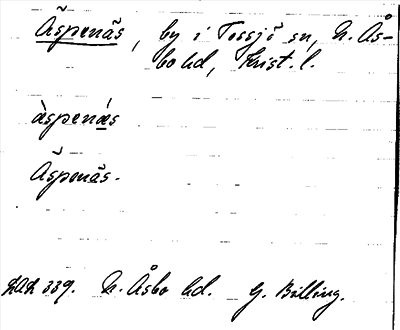 Äspenäs, by i Tossjö sn, N. Ås-
bo hd, Krist. l.
àspenæs
Äspenäs.
KAK 339. N. Åsbo hd. G. Billing.